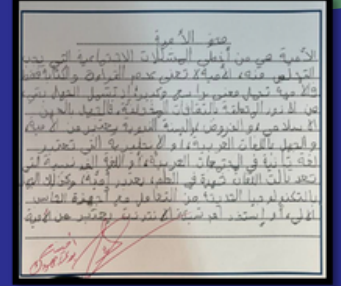 محو الأمية
الأمية هي من أخطر المشكلات الاجتماعية التي يجب
التخلص منه، الأمية لا تعني عدم القراءة والكتابة فقط
الأمية تحمل معنى واسع وكبير، إذ تشمل الجهل بشيء
من الأمور المتعلقة بالثقافات المختلفة، فالجهل بالدين
الإسلامي، والفروض والسنة النبوية يعتبر من الأمية،
والجهل باللغات العربية، أو الإنجليزية التي تعتبر
لغة ثانية في المجتمعات العربية، أو اللغة الفرنسية التي
تعد ثالث اللغات شهرة في العالم، يعتبر أمية، وكذلك الجهل
بالتكنولوجيا الحديثة من التعامل مع أجهزة الحاسب
الآلي، أو استخدام شبكة الإنترنت يعتبر من الأمية
أحسنت